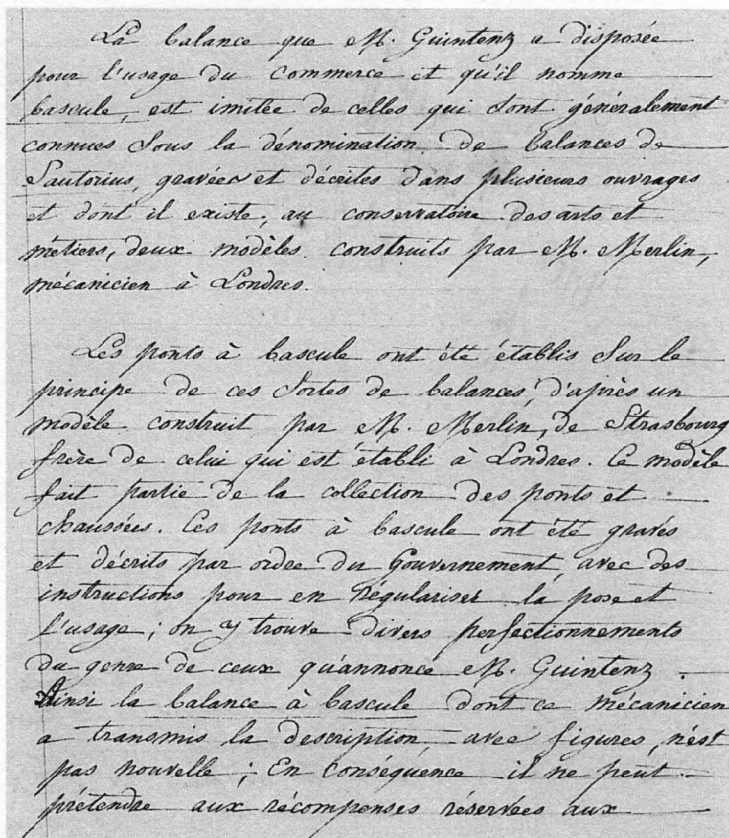 La balance que M. Guintenz a disposée
pour l'usage du commerce et qu'il nomme
bascule, est imitée de celles qui sont généralement
connues sous la dénomination de balances de
Sautorius, gravées et décrites dans plusieurs ouvrages
et dont il existe, au conservatoire des arts et
métiers, deux modèles construits par M. Merlin,
mécanicien à Londres.
Les ponts à bascule ont été établis sur le
principe de ces sortes de balances, d'après un
modèle construit par M. Merlin, de Strasbourg
frère de celui qui est établi à Londres. Ce modèle
fait partie de la collection des ponts et
chaussées. Ces ponts à bascule ont été gravés
et décrits par ordre du Gouvernement, avec des
instructions pour en régulariser la pose et
l'usage ; on y trouve divers perfectionnements
du genre de ceux qu'annonce M. Guintenz.
Ainsi la balance à bascule dont ce mécanicien
a transmis la description avec figures, n'est
pas nouvelle ; En conséquence il ne peut
prétendre aux récompenses réservées aux